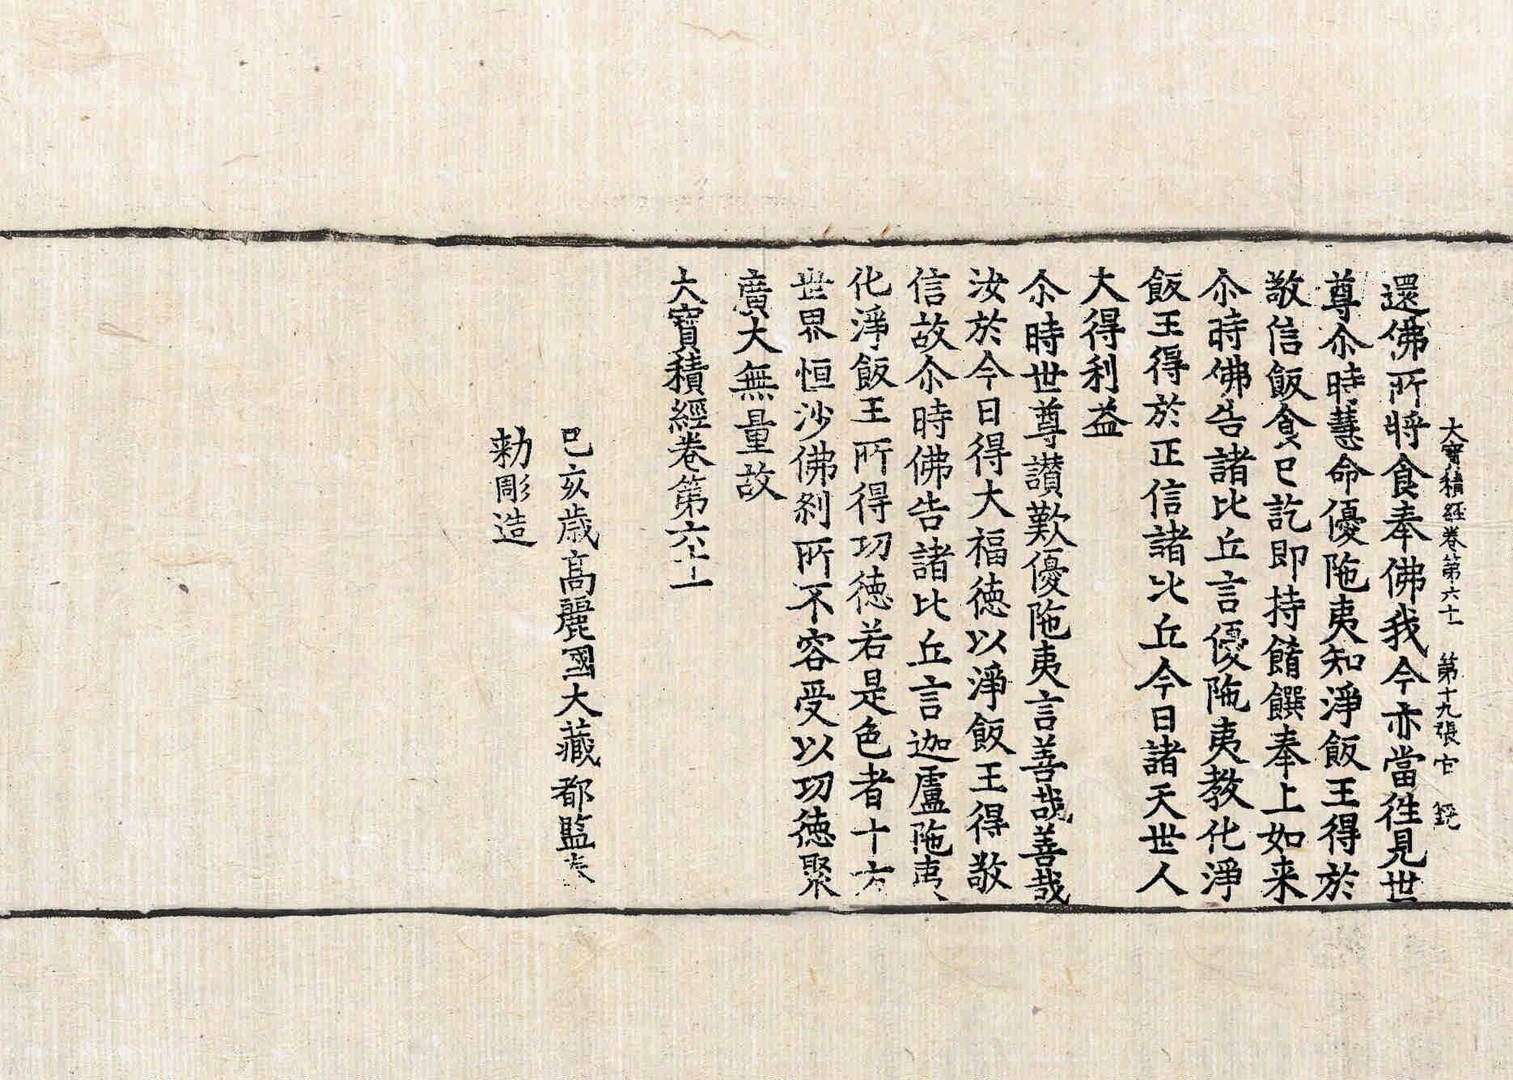 大寶積經卷第六十一　第十九張　官
還佛所將食奉佛我今亦當往見世
尊尒時慧命優陁夷知淨飯王得於
敬信飯食已訖即持餚饌奉上如来
尒時佛告諸比丘言優陁夷教化淨
飯王得於正信諸比丘今日諸天世人
大得利益
尒時世尊讃歎優陁夷言善哉善哉
汝於今日得大福徳以淨飯王得敬
信故尒時佛告諸比丘言迦盧陁夷
化淨飯王所得功徳若是色者十方
世界恒沙佛刹所不容受以功徳聚
廣大無量故
大寶積經卷第六十一
己亥歳高麗國大藏都監奉
勑彫造